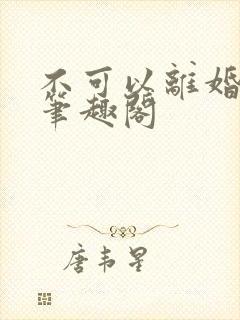 不可以離婚
筆趣閣
唐韦星